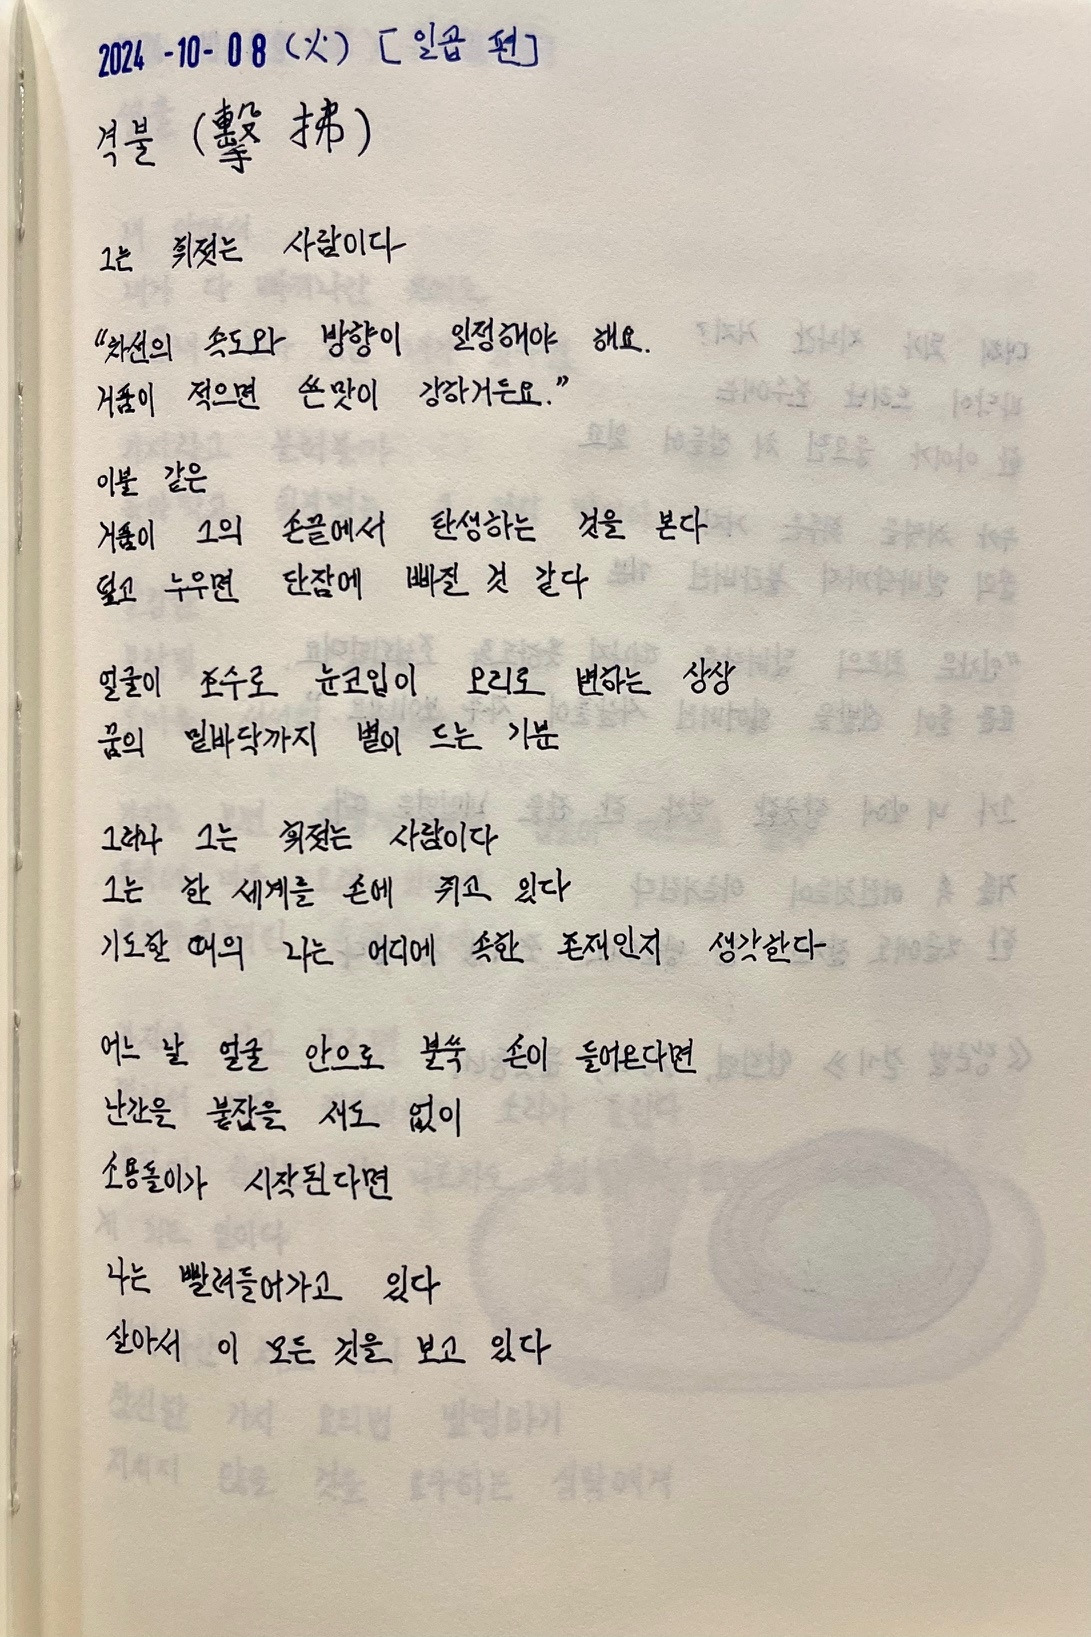 2024-10-08 (火) [일곱 편]
격불 (擊拂)
그는 휘젓는 사람이다
“차선의 속도와 방향이 일정해야 해요.
거품이 적으면 쓴맛이 강하거든요.”
이불 같은
거품이 그의 손끝에서 탄생하는 것을 본다
덮고 누우면 단잠에 빠질 것 같다
얼굴이 조수로 눈코입이 오리로 변하는 상상
꿈의 밑바닥까지 볕이 드는 기분
그러나 그는 휘젓는 사람이다
그는 한 세계를 손에 쥐고 있다
기도할 때의 나는 어디에 속한 존재인지 생각한다
어느 날 얼굴 안으로 불쑥 손이 들어온다면
난간을 붙잡을 새도 없이
소용돌이가 시작된다면
나는 빨려들어가고 있다
살아서 이 모든 것을 보고 있다